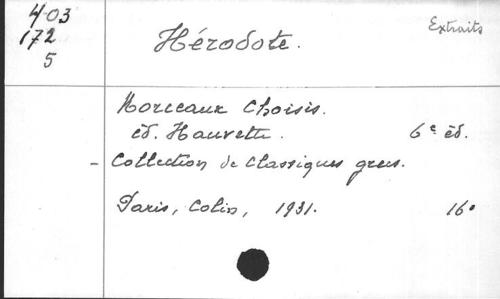 4-03
172
5
Extraits
Hérodote.
Morceaux Choisis.
éd. Hauvette. 6e éd.
- Collection de Classiques grecs.
Paris, Colin, 1931. 16°